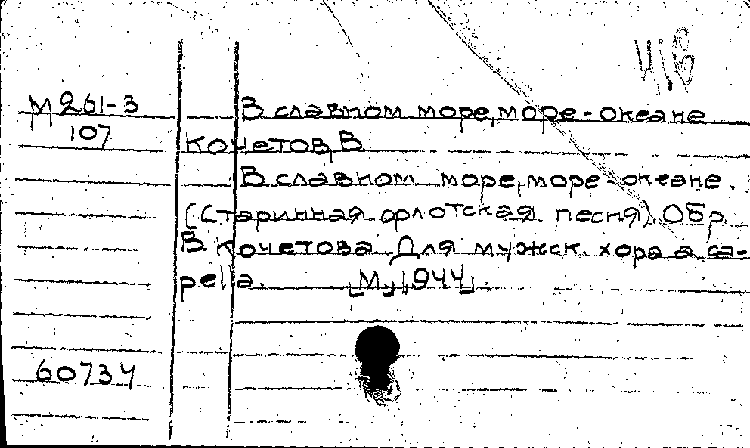 М 261-3
107
В славном море, море-океане
Кочетов, В
В славном море, море-океане.
(Старинная флотская песня). Обр.
В. Кочетова. Для мужск. хора a ca-
pella. [М., 1944].
60734